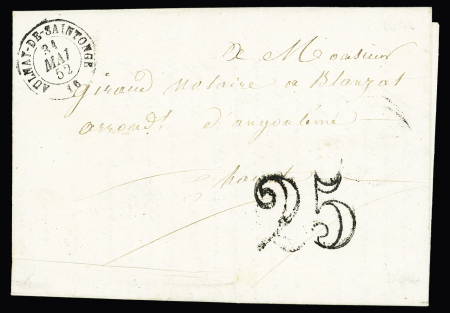 AULNAY-DE-SAINTONGE
31
MAI
52
16
a Monsieur
giraud notaire a Blanzat
arrondt d'angoulême
25